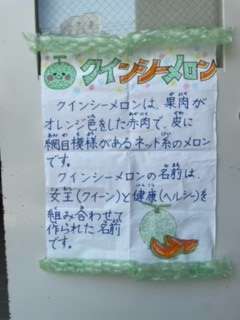 クインシーメロン
クインシーメロンは、果肉が
オレンジ色をした赤肉で、皮に
網目模様があるネット系のメロン
です。
クインシーメロンの名前は、
女王(クイーン)と健康(ヘルシー)を
組み合わせて
作られた名前
です。